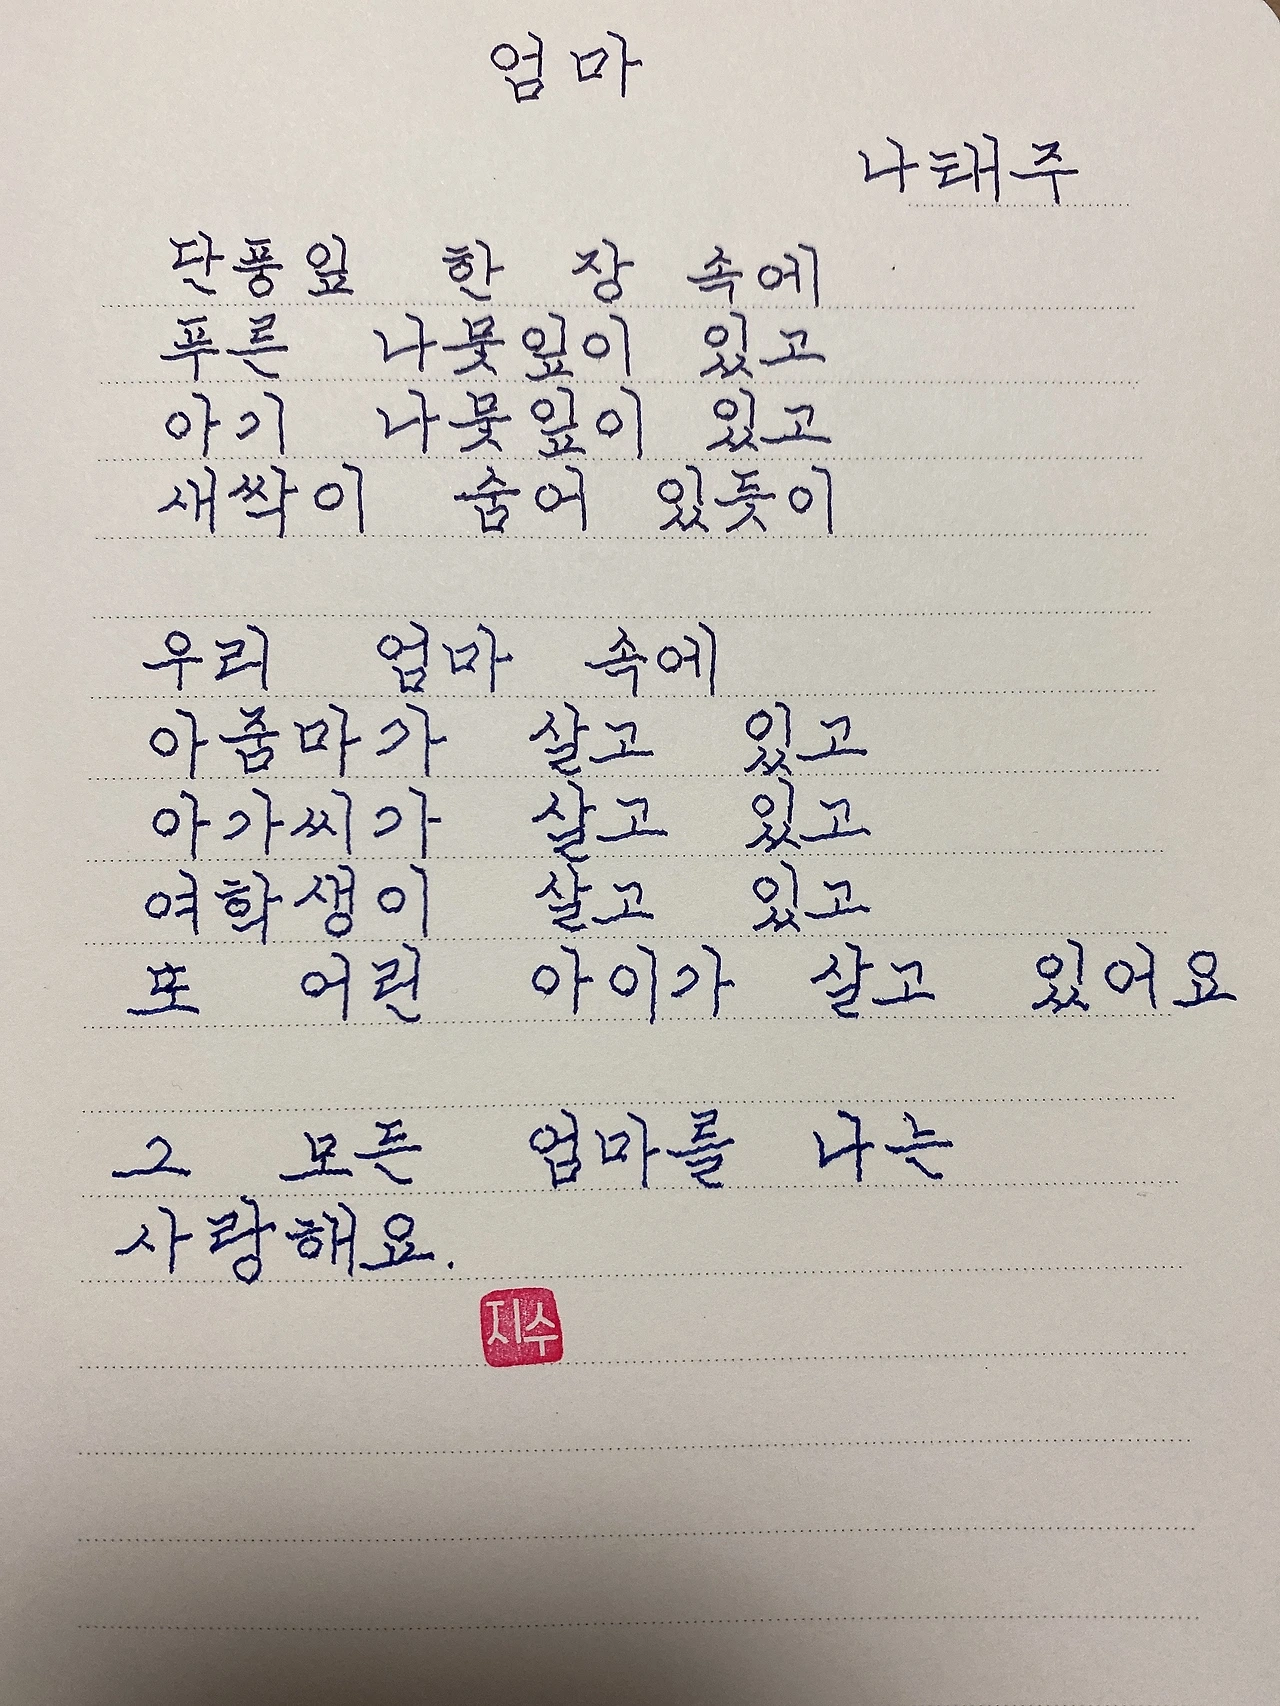 엄마
나태주
단풍잎 한 장 속에
푸른 나뭇잎이 있고
아기 나뭇잎이 있고
새싹이 숨어 있듯이
우리 엄마 속에
아줌마가 살고 있고
아가씨가 살고 있고
여학생이 살고 있고
또 어린 아이가 살고 있어요
그 모든 엄마를 나는
사랑해요.
지수